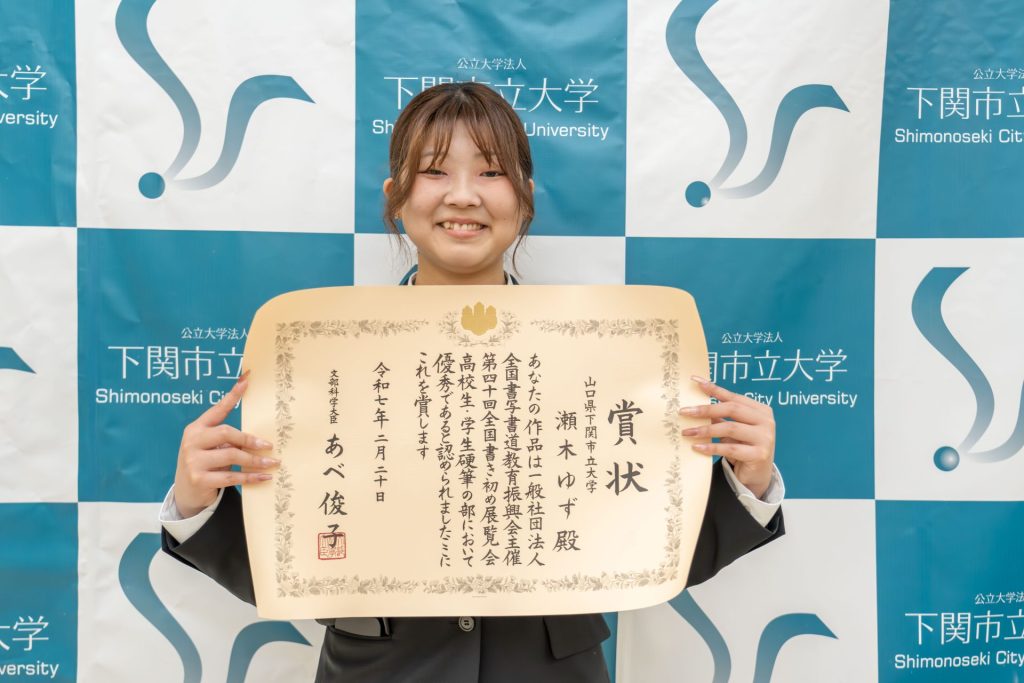 賞状
山口県下関市立大学
瀬木ゆず殿
あなたの作品は一般社団法人
全国書写書道教育振興会主催
第四十回全国書き初め展覧会
高校生・学生硬筆の部において
優秀であると認められましたここに
これを賞します
令和七年二月二十日
文部科学大臣 あべ俊子
大学
ersity
公立大学法人
下関市立大学
Shimonoseki City University
公立大学法人
下関市立
Shimonoseki City Un
公立大学法人
下関市立大
Shimonoseki Ci
公立大学法人
関市立大学
City University
大学
ersity
公立大学法
下関市立
Shimonoseki City Un